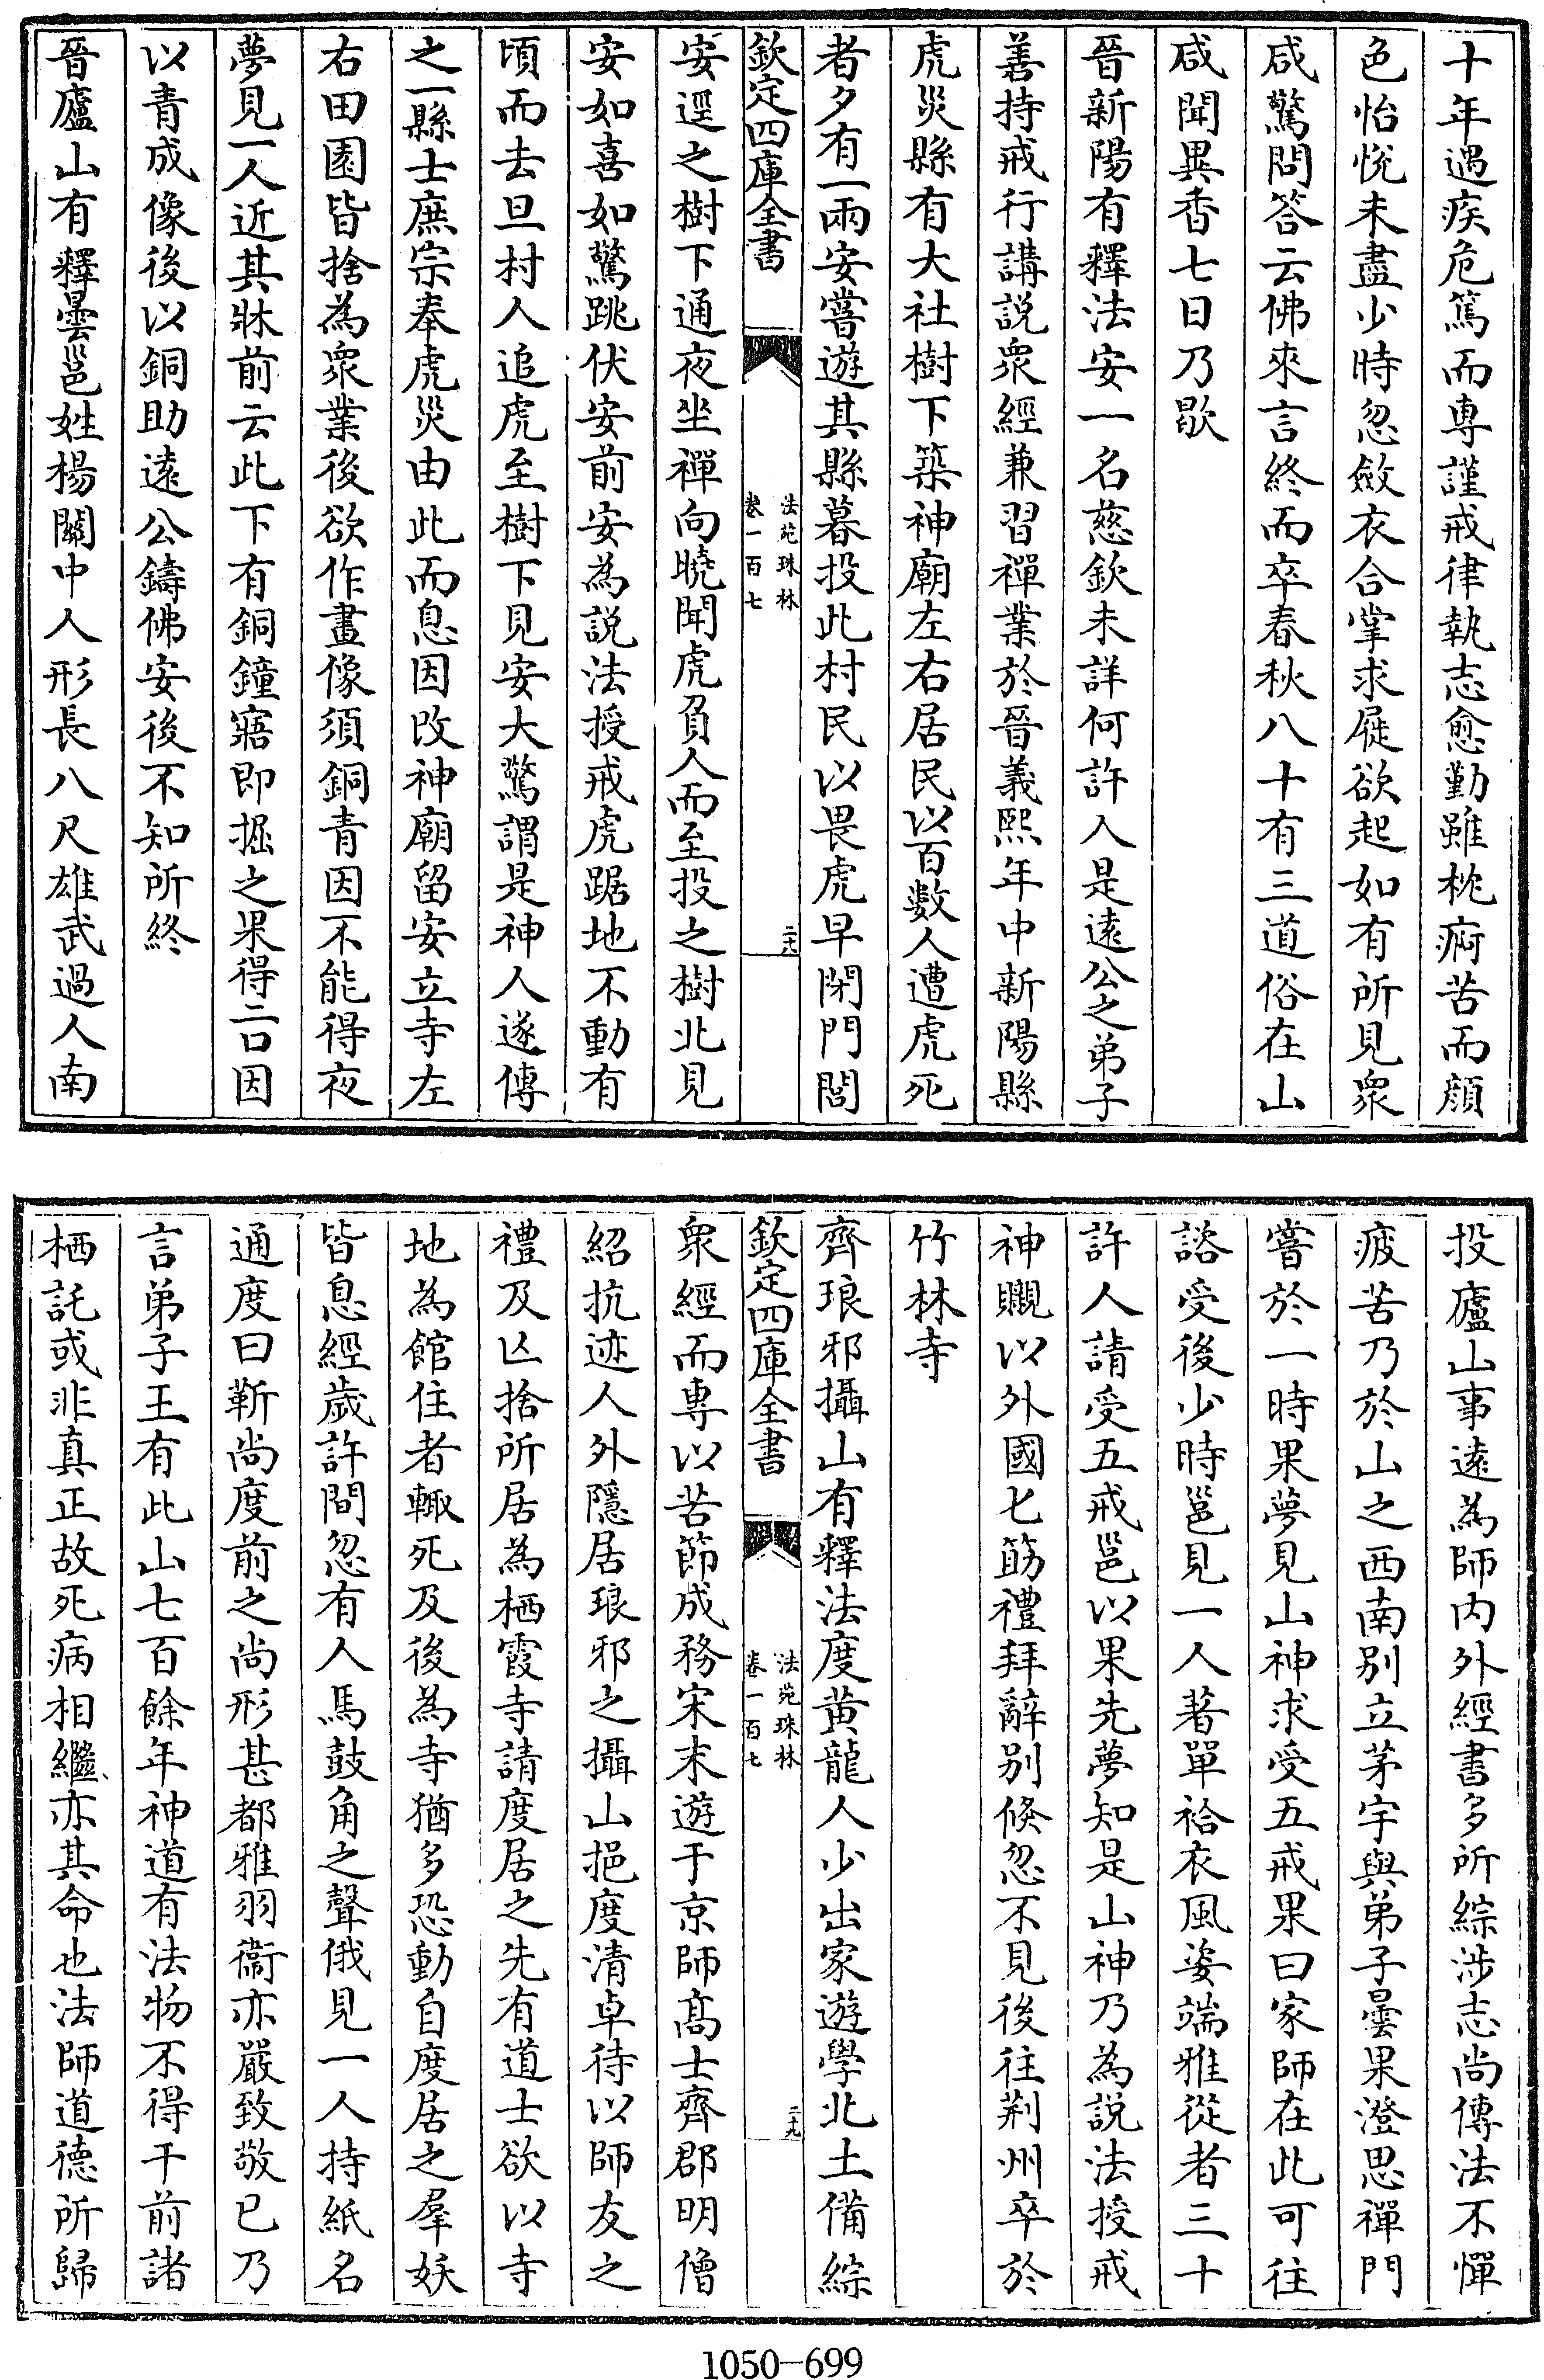 十年遇疾危篤而專謹戒律執志愈勤雖枕痾苦而顔
色怡悅未盡少時忽斂衣合掌求屣欲起如有所見衆
咸驚問答云佛來言終而卒春秋八十有三道俗在山
咸聞異香七日乃歇
晉新陽有釋法安一名慈欽未詳何許人是遠公之弟子
善持戒行講説衆經兼習禪業於晉義熙年中新陽縣
虎災縣有大社樹下築神廟左右居民以百數人遭虎死
者夕有一兩安嘗遊其縣暮投此村民以畏虎早閉門閭
欽定四庫全書
法苑珠林
卷一百七
二十八
安逕之樹下通夜坐禪向曉聞虎負人而至投之樹北見
安如喜如驚跳伏安前安為説法授戒虎踞地不動有
頃而去旦村人追虎至樹下見安大驚謂是神人遂傳
之一縣士庶宗奉虎災由此而息因改神廟留安立寺左
右田園皆捨為衆業後欲作畫像須銅青因不能得夜
夢見一人近其牀前云此下有銅鐘寤即掘之果得二口因
以青成像後以銅助遠公鑄佛安後不知所終
晉廬山有釋曇邕姓楊關中人形長八尺雄武過人南
投廬山事遠為師内外經書多所綜涉志尚傳法不憚
疲苦乃於山之西南别立茅宇與弟子曇果澄思禪門
嘗於一時果夢見山神求受五戒果曰家師在此可往
諮受後少時邕見一人著單袷衣風姿端雅從者三十
許人請受五戒邕以果先夢知是山神乃為説法授戒
神瞡以外國匕筯禮拜辭别倏忽不見後往荆州卒於
竹林寺
齊琅邪攝山有釋法度黄龍人少出家遊學北土備綜
欽定四庫全書
法苑珠林
卷一百七
二十九
衆經而專以苦節成務宋末遊于京師髙士齊郡明僧
紹抗迹人外隱居琅邪之攝山挹度清卓待以師友之
禮及亡捨所居為栖霞寺請度居之先有道士欲以寺
地為館住者輙死及後為寺猶多恐動自度居之羣妖
皆息經歲許間忽有人馬鼓角之聲俄見一人持紙名
通度曰靳尚度前之尚形甚都雅羽衞亦嚴致敬已乃
言弟子王有此山七百餘年神道有法物不得干前諸
栖託或非真正故死病相繼亦其命也法師道德所歸
1050-699